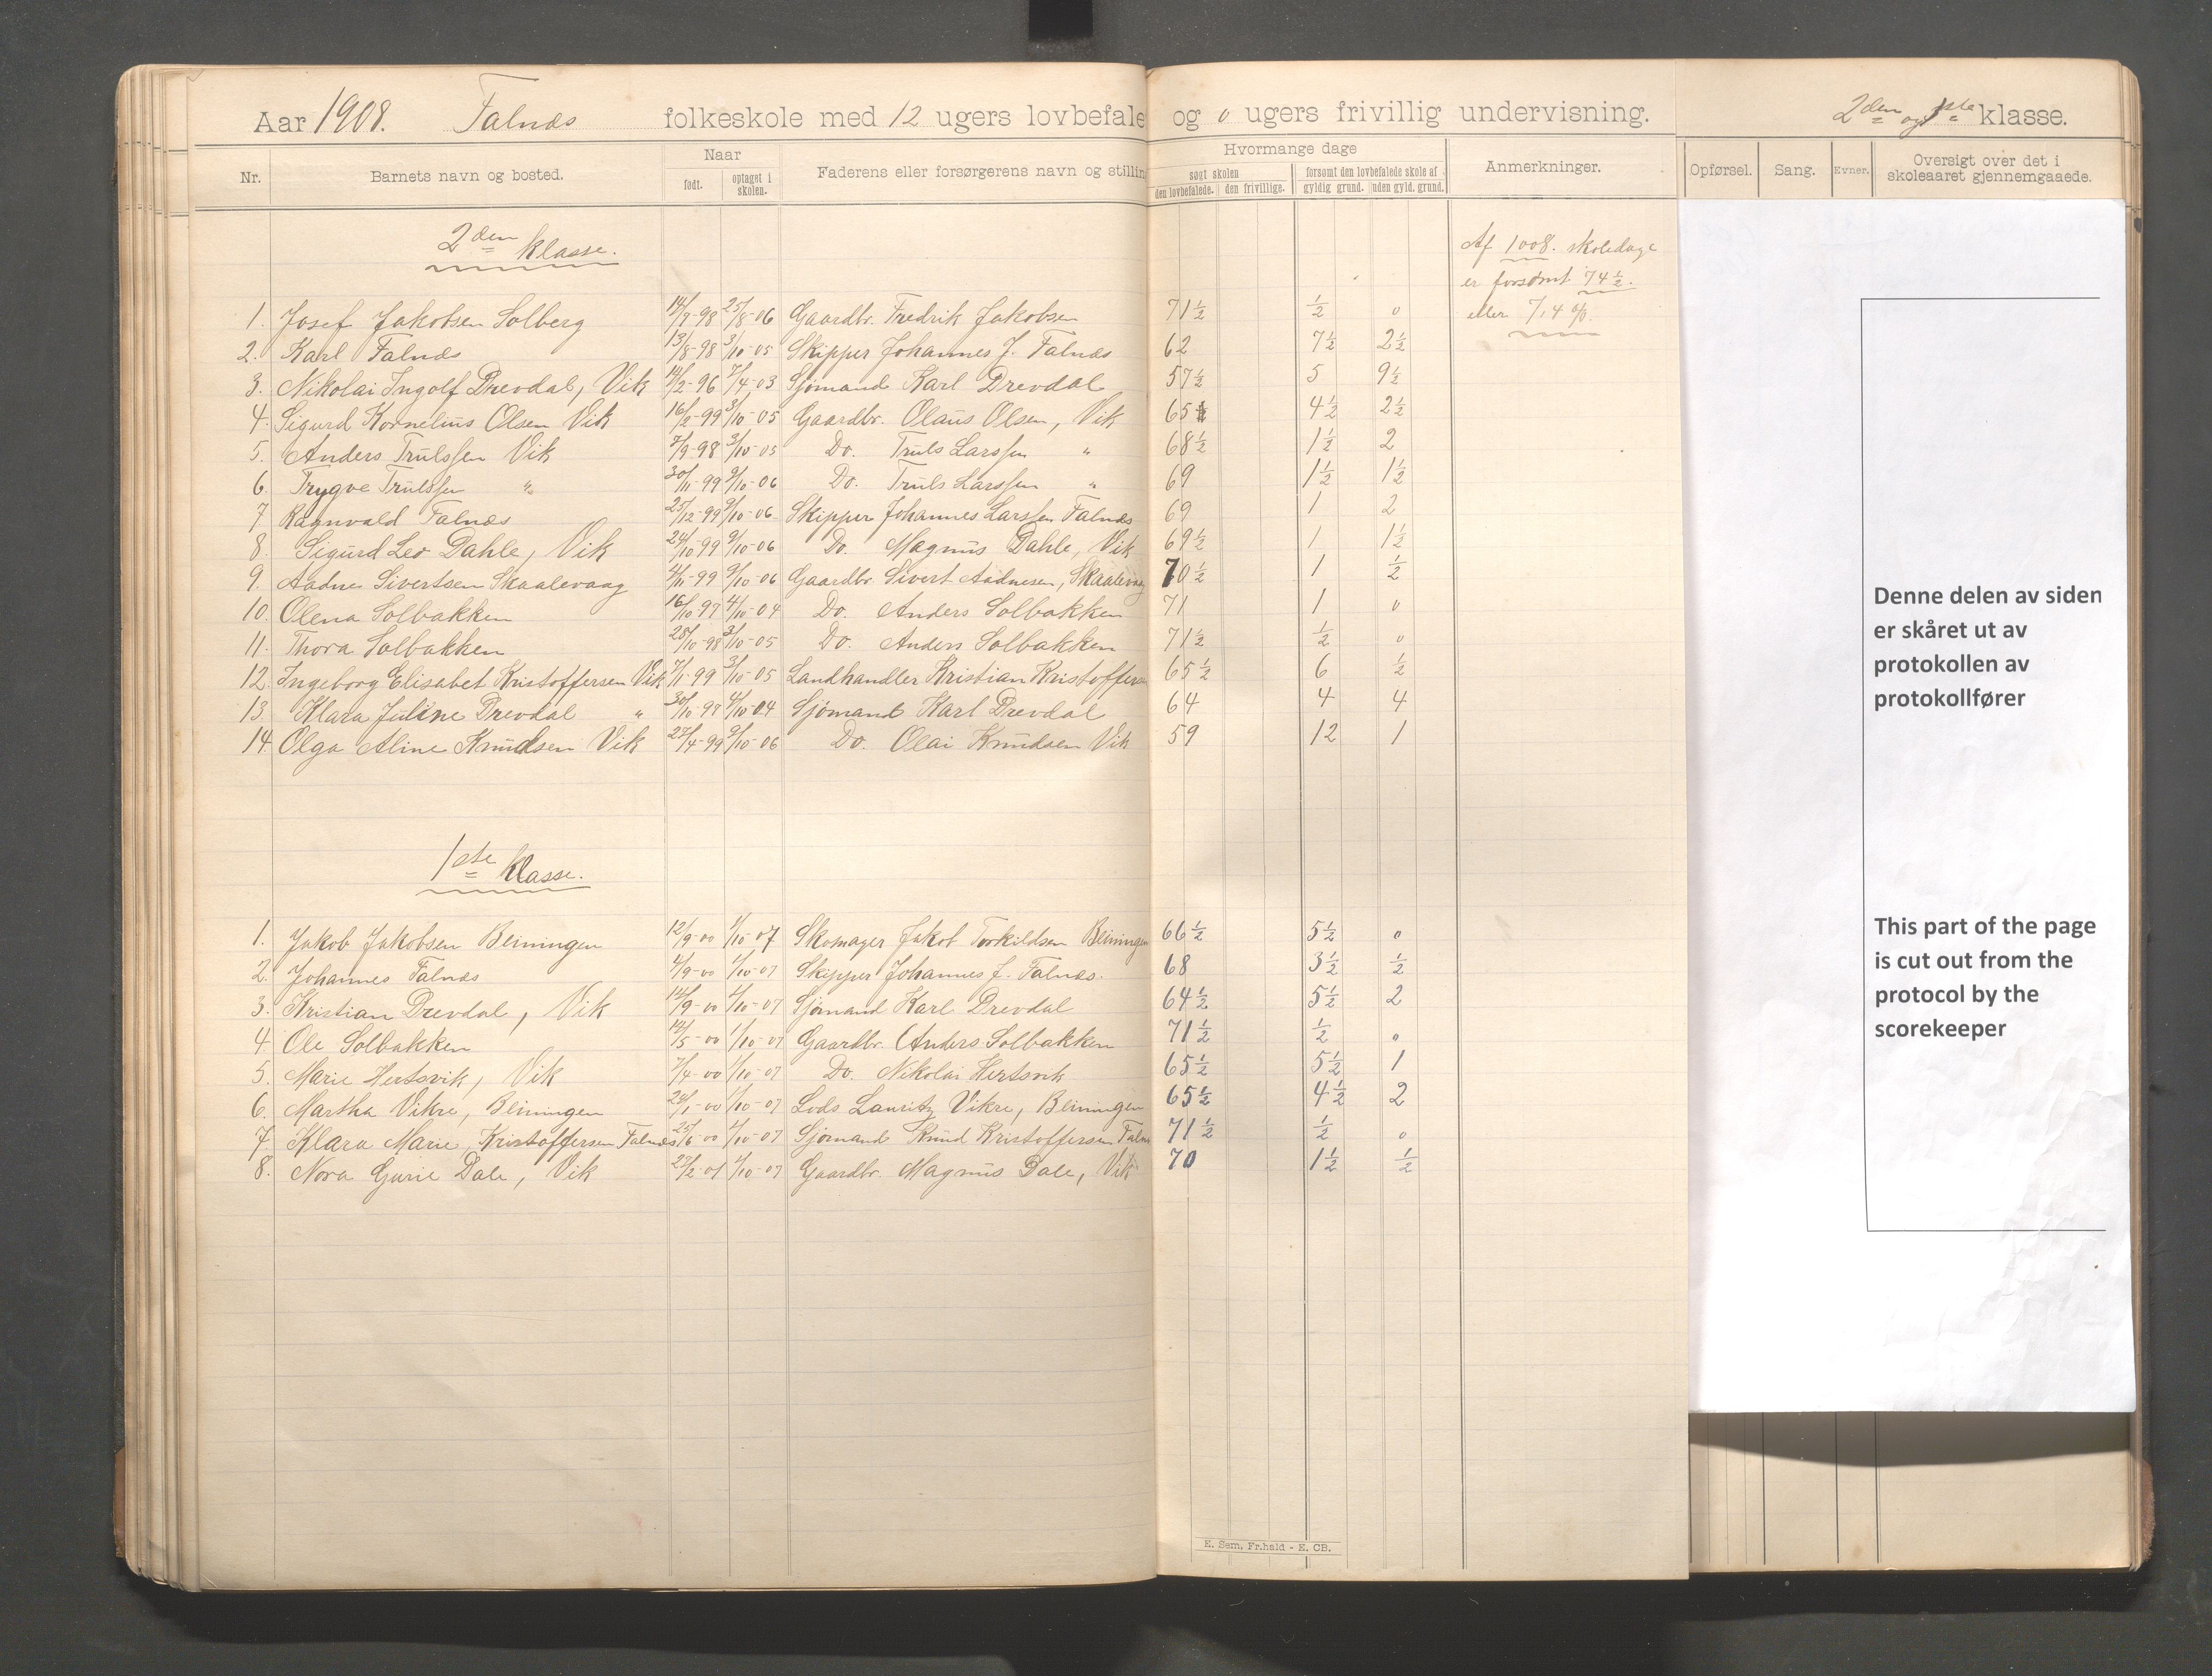 Aar 1908. Falnæs folkeskole med 12 ugers lovbefale og 0 ugers frivillig undervisning. 2den og 1ste klasse.
Nr. Barnets navn og bosted. Naar født. optaget i skolen. Faderens eller forsørgerens navn og stillin Hvormange dage søgt skolen den lovbefalede. den frivillige. forsømt den lovbefalede skole af gyldig grund. uden gyld. grund. Anmerkninger. Opførsel. Sang. Evner. Oversigt over det i skoleaaret gjennemgaaede.
2den klasse.
Af 1008. skoledage
er forsømt 74 1/2.
eller 7,4 %.
1. Josef Jakobsen Solberg 14/7-98 25/8-06 Gaardbr. Fredrik Jakobsen 71 1/2 1/2 0
2. Karl Falnæs 13/8-98 3/10-05 Skipper Johannes J. Falnæs 62 7 1/2 2 1/2
3. Nikolai Ingolf Drevdal, Vik 14/2-96 7/4-03 Sjømand Karl Drevdal 57 1/2 5 9 1/2
4. Sigurd Kornelius Olsen Vik 16/2-99 3/10-05 Gaardbr. Olaus Olsen, Vik 65 4 1/2 2 1/2
5. Anders Trulssen Vik 7/9-98 3/10-05 Do. Truls Larssen " 68 1/2 1 1/2 2
6. Trygve Trulssen " 30/11-99 9/10-06 Do. Truls Larssen " 69 1 1/2 1 1/2
7 Ragnvald Falnæs 25/12-99 9/10-06 Skipper Johannes Larssen Falnæs 69 1 2
8. Sigurd Leo Dahle, Vik 24/10-99 9/10-06 Do. Magnus Dahle, Vik 69 1/2 1 1 1/2
9. Aadne Sivertsen Skaalevaag 4/11-99 9/10-06 Gaardbr Sivert Aadnesen, Skaalevaag 70 1/2 1 1/2
10. Olena Solbakken 16/10-97 4/10-04 Do. Anders Solbakken 71 1 0
11. Thora Solbakken 28/10-98 3/10-05 Do. Anders Solbakken 71 1/2 1/2 0
12. Ingeborg Elisabet Kristoffersen Vik 7/1-99 3/10-05 Landhandler Kristian Kristoffersen 65 1/2 6 1/2
13. Klara Juline Drevdal " 30/10-97 4/10-04 Sjømand Karl Drevdal 64 4 4
14. Olga Aline Knudsen Vik 27/4-99 9/10-06 Do. Olai Knudsen Vik 59 12 1
1ste klasse.
1. Jakob Jakobsen Beiningen 12/9-00 1/10-07 Skomager Jakob Torkildsen Beiningen 66 1/2 5 1/2 0
2. Johannes Falnæs 4/9-00 1/10-07 Skipper Johannes J. Falnæs. 68 3 1/2 1/2
3. Kristian Drevdal, Vik 14/9-00 1/10-07 Sjømand Karl Drevdal 64 1/2 5 1/2 2
4 Ole Solbakken 14/5-00 1/10-07 Gaardbr. Anders Solbakken 71 1/2 1/2 0
5. Marie Hertsvik, Vik 7/4-00 1/10-07 Do. Nikolai Hertsvik 65 1/2 5 1/2 1
6. Martha Vikre, Beiningen 24/1-00 1/10-07 Lods Lauritz Vikre, Beiningen 65 1/2 4 1/2 2
7. Klara Marie Kristoffersen Falnæs 25/6-00 1/10-07 Sjømand Knud Kristoffersen Faln 71 1/2 1/2 0
8. Nora Gurie Dale, Vik 27/2-01 1/10-07 Gaardbr. Magnus Dale, Vik 70 1 1/2 1/2
E. Sem, Fr.hald - E. CB.
Denne delen av siden
er skåret ut av
protokollen av
protokollfører
This part of the page
is cut out from the
protocol by the
scorekeeper